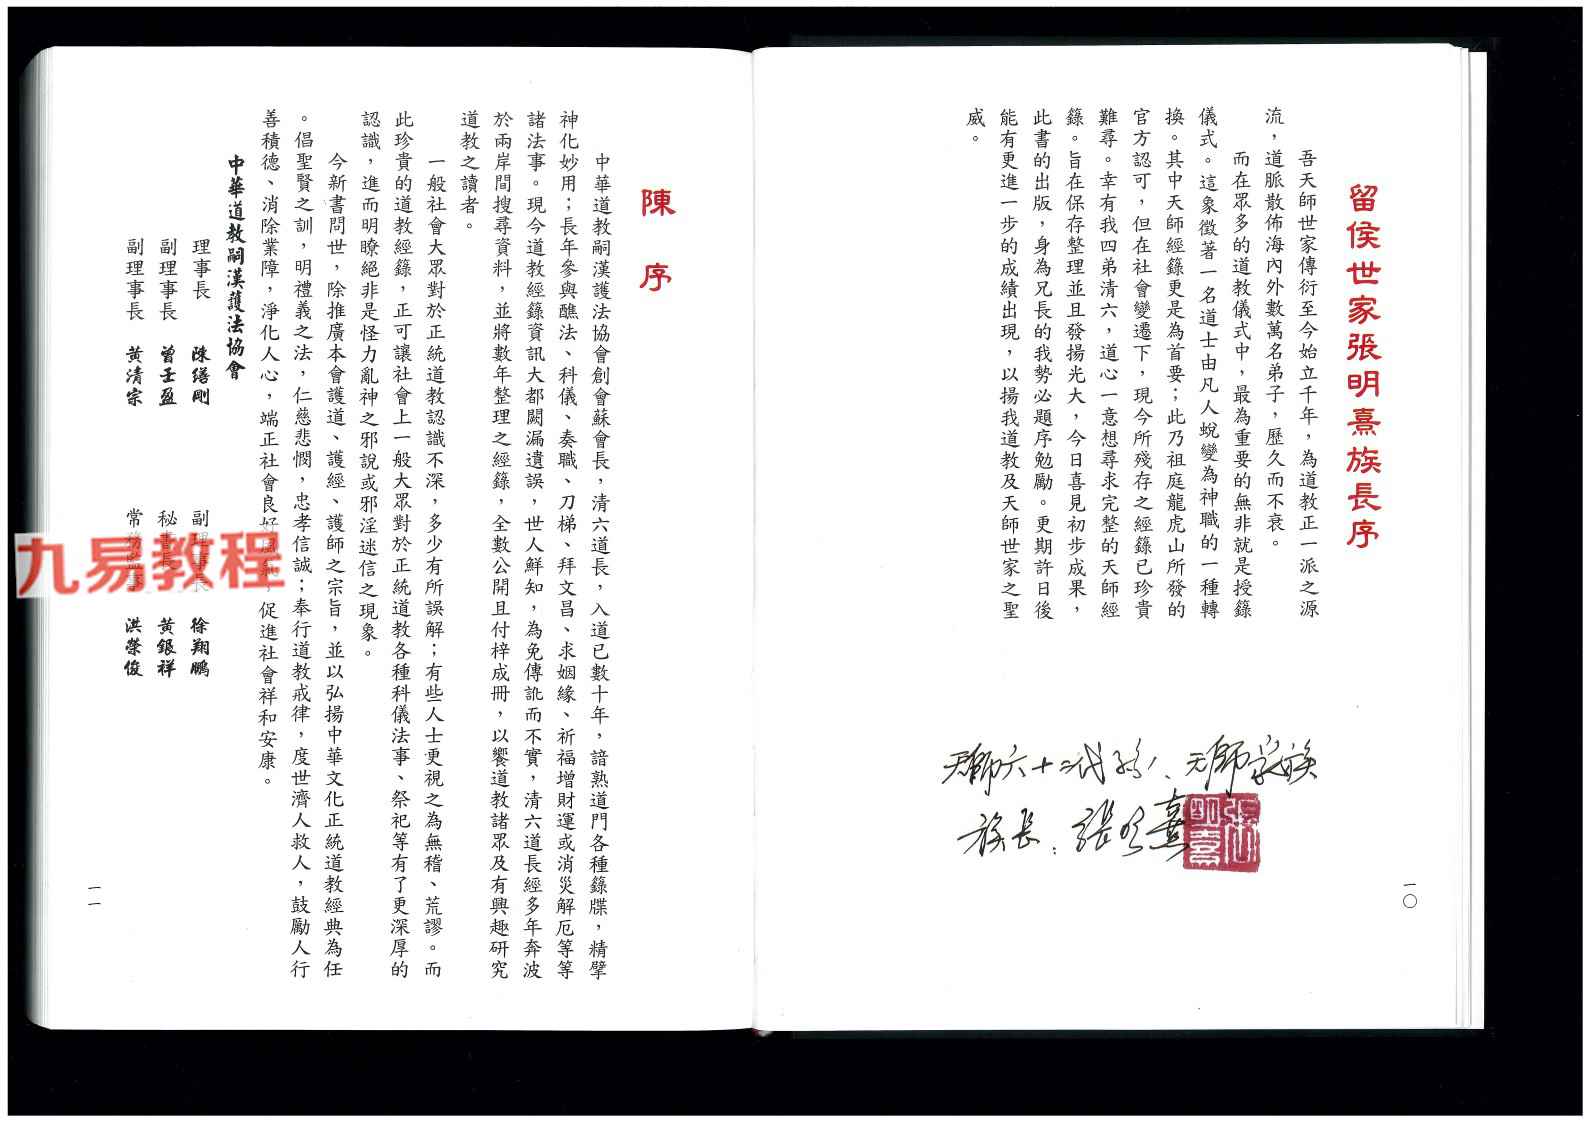 留侯世家張明熹族長序
吾天師世家傳衍至今始立千年，為道教正一派之源
流，道脈散佈海內外數萬名弟子，歷久而不衰。
而在眾多的道教儀式中，最為重要的無非就是授籙
儀式。這象徵著一名道士由凡人蛻變為神職的一種轉
換。其中天師經籙更是為首要；此乃祖庭龍虎山所發的
官方認可，但在社會變遷下，現今所殘存之經籙已珍貴
難尋。幸有我四弟清六，道心一意想尋求完整的天師經
籙。旨在保存整理並且發揚光大，今日喜見初步成果，
此書的出版，身為兄長的我勢必題序勉勵。更期許日後
能有更進一步的成績出現，以揚我道教及天師世家之聖
威。
天師六十二代孫、天師家族
族長：張明熹
張明熹
一〇
陳序
中華道教嗣漢護法協會創會蘇會長，清六道長，入道已數十年，諳熟道門各種籙牒，精擘
神化妙用；長年參與醮法、科儀、奏職、刀梯、拜文昌、求姻緣、祈福增財運或消災解厄等等
諸法事。現今道教經籙資訊大都闕漏遺誤，世人鮮知，為免傳訛而不實，清六道長經多年奔波
於兩岸間搜尋資料，並將數年整理之經籙，全數公開且付梓成冊，以饗道教諸眾及有興趣研究
道教之讀者。
一般社會大眾對於正統道教認識不深，多少有所誤解；有些人士更視之為無稽、荒謬。而
此珍貴的道教經籙，正可讓社會上一般大眾對於正統道教各種科儀法事、祭祀等有了更深厚的
認識，進而明瞭絕非是怪力亂神之邪說或邪淫迷信之現象。
今新書問世，除推廣本會護道、護經、護師之宗旨，並以弘揚中華文化正統道教經典為任
。倡聖賢之訓，明禮義之法，仁慈悲憫，忠孝信誠；奉行道教戒律，度世濟人救人，鼓勵人行
善積德、消除業障，淨化人心，端正社會良好風氣，促進社會祥和安康。
中華道教嗣漢護法協會
理事長 陳繕剛 副理事長 徐翔鵬
副理事長 曾壬盈 秘書長 黃銀祥
副理事長 黃清宗 常務監事 洪榮俊
一一
九易教程